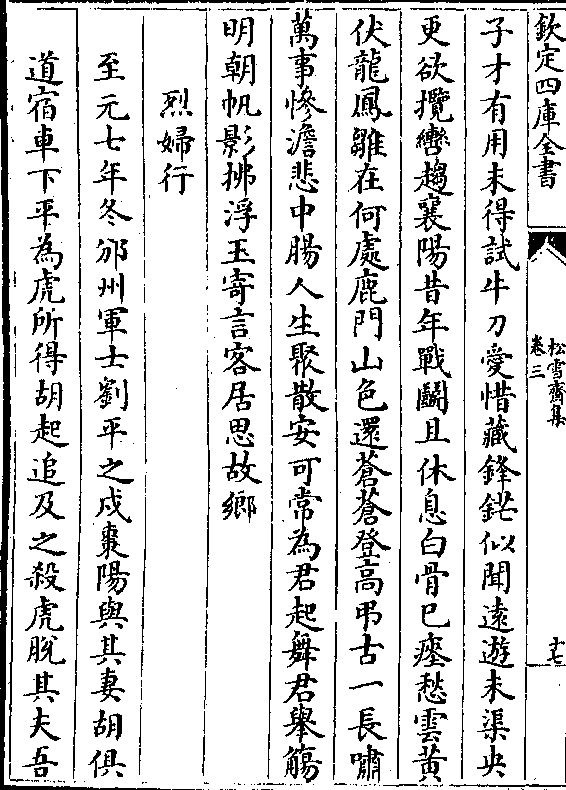 欽定四庫全書
松雪齋集
卷三
十七
子才有用未得試牛刀愛惜藏鋒鋩似聞遠遊未渠央
更欲攬轡趨襄陽昔年戰鬭且休息白骨已瘞愁雲黃
伏龍鳳雛在何處鹿門山色還蒼蒼登高弔古一長嘯
萬事慘澹悲中腸人生聚散安可常為君起舞君舉觴
明朝帆影拂浮玉寄言客居思故鄉
烈婦行
至元七年冬邠州軍士劉平之戍棗陽與其妻胡俱
道宿車下平為虎所得胡起追及之殺虎脫其夫吾